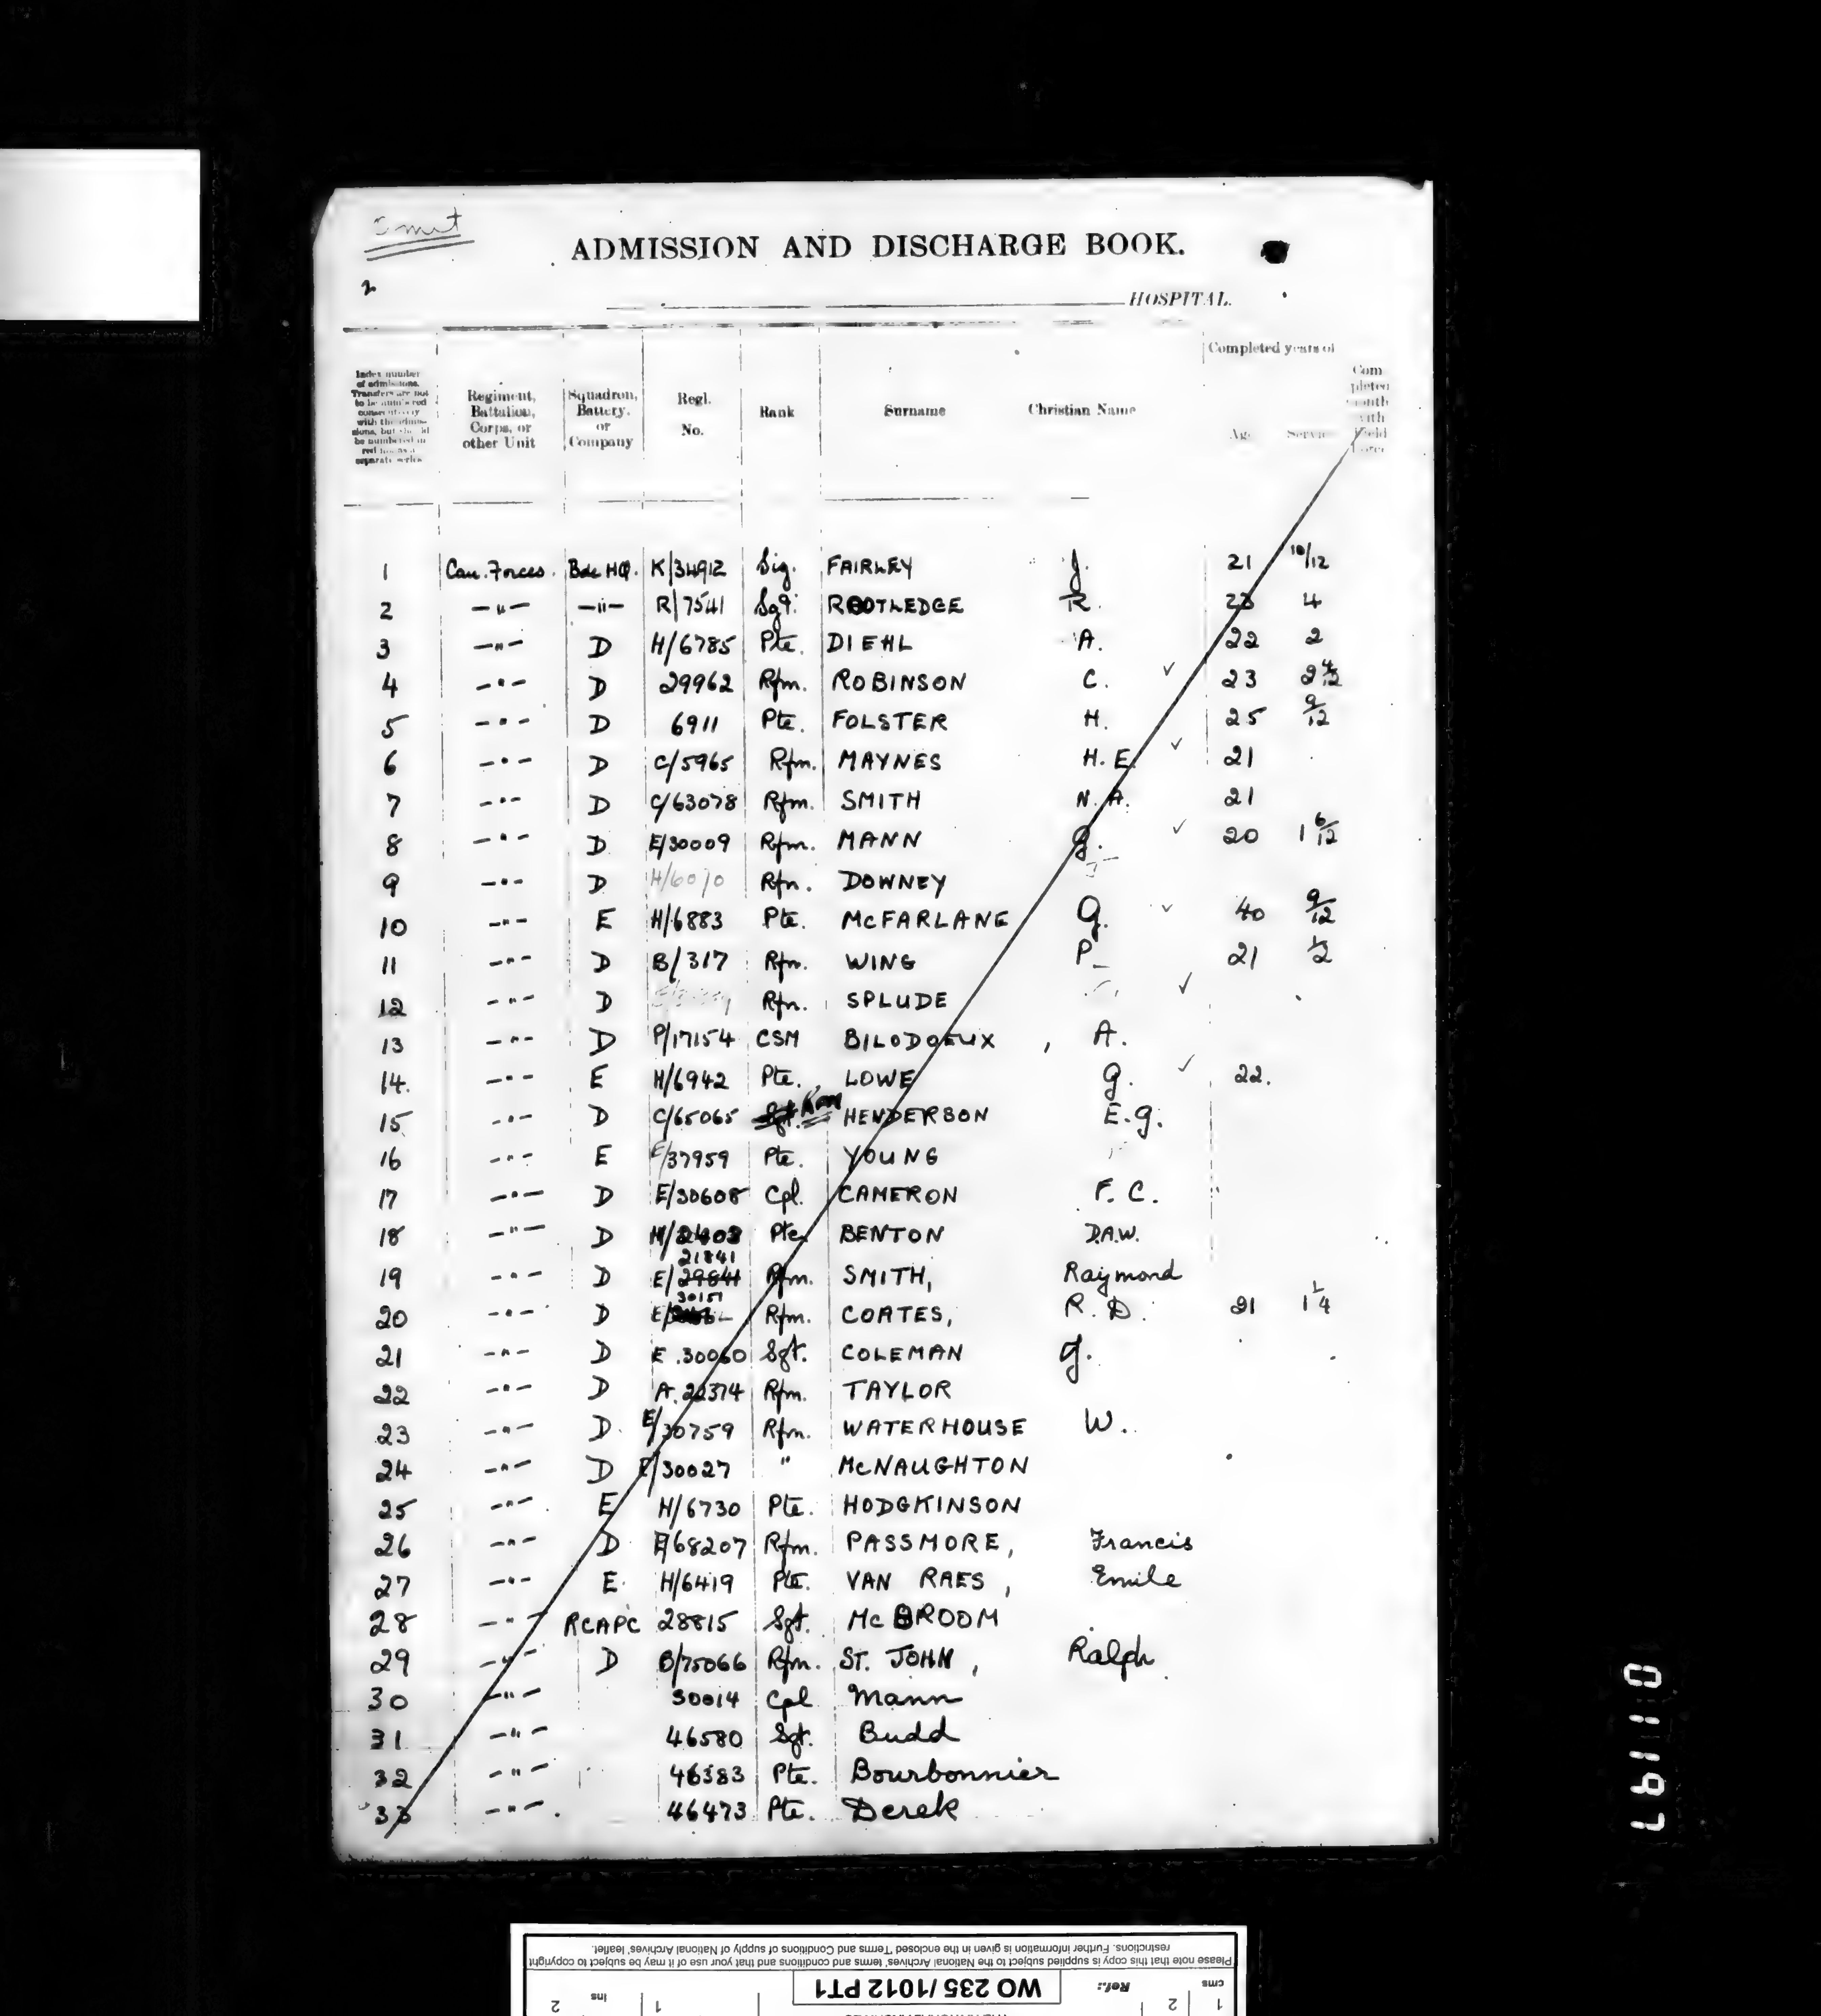 Omit
ADMISSION AND DISCHARGE BOOK.
2
HOSPITAL.
Completed years of
Index number of admissions. Transfers are not to be numbered consecutively with the admissions, but should be numbered in red ink as a separate series
Regiment, Battalion, Corps, or other Unit
Squadron, Battery, or Company
Regl. No.
Rank
Surname
Christian Name
Age
Service
Completed month with Field Force
1 Can. Forces. Bde HQ. K/34912 Sig. FAIRLEY J. 21 10/12
2 —"— —"— R/7541 Sgt. ROOTLEDGE R. 23 4
3 —"— D H/6785 Pte. DIEHL A. 22 2
4 —"— D 29962 Rfm. ROBINSON C. ✓ 23 2 4/12
5 —"— D 6911 Pte. FOLSTER H. 25 9/12
6 —"— D C/5965 Rfm. MAYNES H.E. ✓ 21
7 —"— D C/63078 Rfm. SMITH N.A. 21
8 —"— D E/30009 Rfm. MANN G. ✓ 20 1 6/12
9 —"— D H/6010 Rfn. DOWNEY
10 —"— E H/6883 Pte. McFARLANE G. ✓ 40 9/12
11 —"— D B/317 Rfm. WING P_ 21 1/2
12 —"— D Rfn. SPLUDE ✓
13 —"— D P/17154 CSM BILODOEUX, A.
14. —"— E H/6942 Pte. LOWE G. ✓ 22.
15 —"— D C/65065 Sgt. HENDERSON E.G.
16 —"— E E/37959 Pte. YOUNG
17 —"— D E/30608 Cpl. CAMERON F. C.
18 —"— D H/2403 Pte. BENTON D.A.W.
21841
19 —"— D E/29841 Rfm. SMITH, Raymond
30151
20 —"— D E/ Rfm. COATES, R. D. 21 1 1/4
21 —"— D E.30060 Sgt. COLEMAN J.
22 —"— D A.22374 Rfm. TAYLOR
23 —"— D. E/30759 Rfm. WATERHOUSE W.
24 —"— D E/30027 " McNAUGHTON
25 —"— E H/6730 Pte. HODGKINSON
26 —"— D E/68207 Rfm. PASSMORE, Francis
27 —"— E. H/6419 Pte. VAN RAES, Emile
28 —"— RCAPC 28815 Sgt. McBROOM
29 —"— D B/75066 Rfm. ST. JOHN, Ralph
30 —"— 30014 Cpl Mann
31 —"— 46580 Sgt. Budd
32 —"— 46383 Pte. Bourbonnier
33 —"— 46473 Pte. Derek
011197
Please note that this copy is supplied subject to the National Archives' terms and conditions and that your use of it may be subject to copyright
restrictions. Further information is given in the enclosed 'Terms and Conditions of supply of National Archives' leaflet.
WO 235/1012 PT1
Ref.:
cms 1 2
ins 1 2